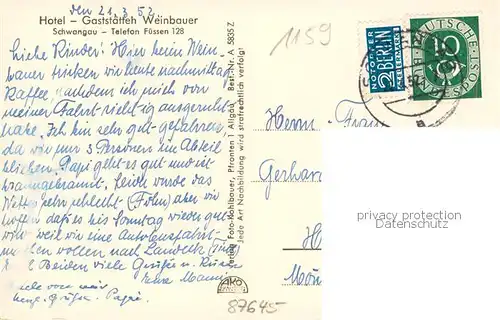 den 21.3.52.
Hotel – Gaststätten Weinbauer
Schwangau – Telefon Füssen 128
Liebe Kinder! Hier beim Wein-
bauer trinken wir heute nachmittag
Kaffee, nachdem ich mich von
meiner Fahrt richtig ausgeruht
habe. Ich bin sehr gut gefahren
da wir nur 3 Personen im Abteil
blieben. Papi geht es gut und ist
braungebrannt. Leider wurde das
Wetter sehr schlecht (Föhn) aber wir
hoffen daß es bis Sonntag wieder gut
wird weil wir eine Autobusfahrt
machen wollen nach Landeck
Beiden viele Grüße u. Küsse
Eure Mammi
viele
herzl. Grüße. Papi.
Verlag Foto-Kohlbauer, Pfronten 1 Allgäu Best.-Nr. A 5835 Z
Jede Art Nachbildung wird strafrechtlich verfolgt
AKO
1159
NOTOPFER
2 BERLIN
STEUERMARKE
DEUTSCHE
POST
10
Herrn
Gerhard
H
87645
privacy protection
Datenschutz